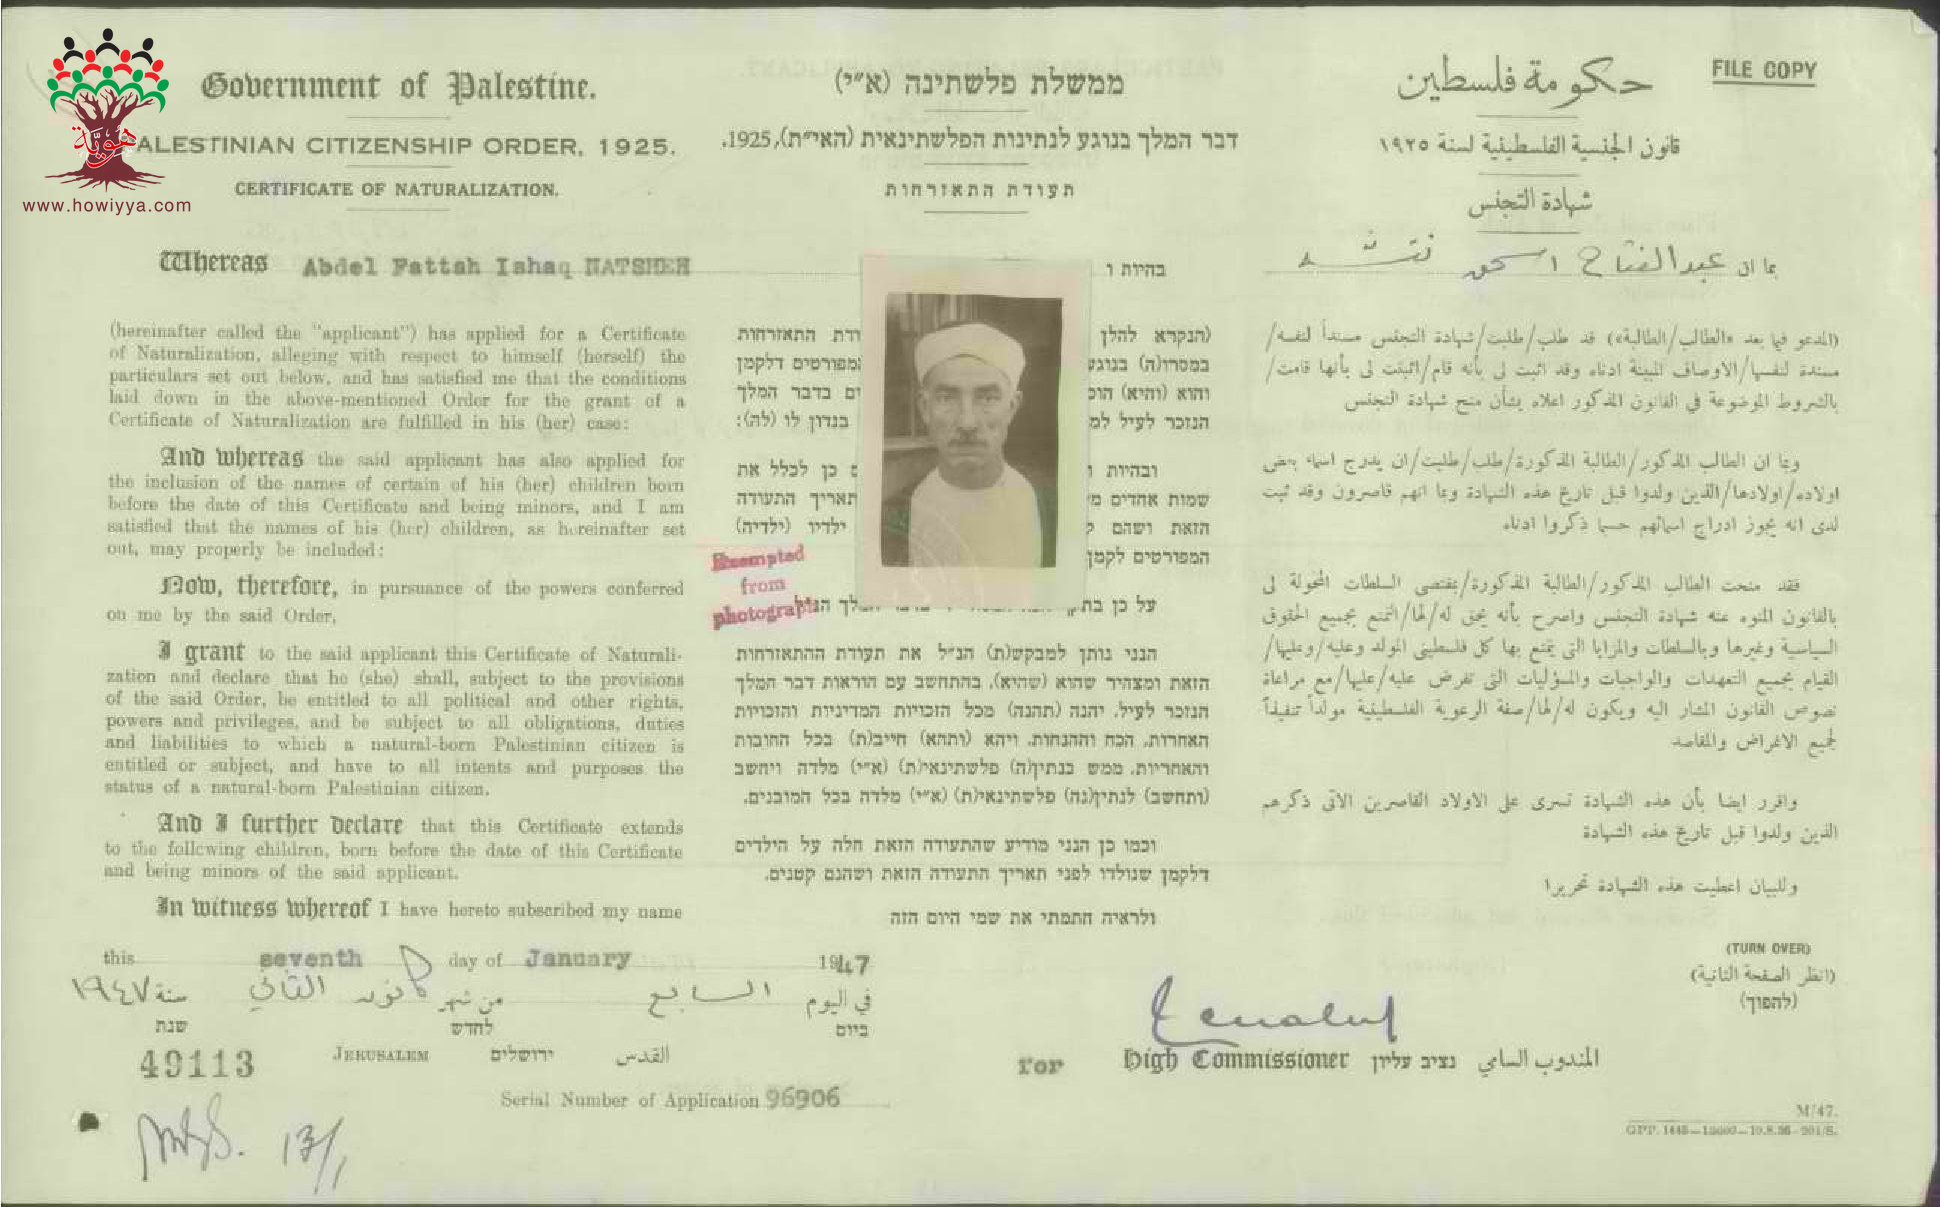 هوية
www.howiyya.com
Government of Palestine.
PALESTINIAN CITIZENSHIP ORDER, 1925.
CERTIFICATE OF NATURALIZATION.
ממשלת פלשתינה (א״י)
דבר המלך בנוגע לנתינות הפלשתינאית (הא״ית), 1925.
תעודת התאזרחות
FILE COPY
حكومة فلسطين
قانون الجنسية الفلسطينية لسنة ١٩٢٥
شهادة التجنس
Whereas Abdel Fattah Ishaq NATSHEH
(hereinafter called the "applicant") has applied for a Certificate
of Naturalization, alleging with respect to himself (herself) the
particulars set out below, and has satisfied me that the conditions
laid down in the above-mentioned Order for the grant of a
Certificate of Naturalization are fulfilled in his (her) case:
And whereas the said applicant has also applied for
the inclusion of the names of certain of his (her) children born
before the date of this Certificate and being minors, and I am
satisfied that the names of his (her) children, as hereinafter set
out, may properly be included:
Now, therefore, in pursuance of the powers conferred
on me by the said Order,
I grant to the said applicant this Certificate of Naturali-
zation and declare that he (she) shall, subject to the provisions
of the said Order, be entitled to all political and other rights,
powers and privileges, and be subject to all obligations, duties
and liabilities to which a natural-born Palestinian citizen is
entitled or subject, and have to all intents and purposes the
status of a natural-born Palestinian citizen.
And I further declare that this Certificate extends
to the following children, born before the date of this Certificate
and being minors of the said applicant.
In witness whereof I have hereto subscribed my name
בהיות ו
(הנקרא להלן ודת התאזרחות
במסרו(ה) בנוגע המפורטים דלקמן
והוא (והיא) הוכ ים בדבר המלך
הנזכר לעיל למ בנדון לו (לה):
ובהיות ו ם כן לכלל את
שמות אחדים מ תאריך התעודה
הזאת ושהם ילדיו (ילדיה)
המפורטים לקמן
על כן
Exempted
from
photograph
הנני נותן למבקש(ת) הנ״ל את תעודת ההתאזרחות
הזאת ומצהיר שהוא (שהיא), בהתחשב עם הוראות דבר המלך
הנזכר לעיל, יהנה (תהנה) מכל הזכויות המדיניות והזכויות
האחרות, הכח וההנחות, ויהא (ותהא) חייב(ת) בכל החובות
והאחריות, ממש כנתין(ה) פלשתינאי(ת) (א״י) מלדה ויחשב
(ותחשב) לנתין(נה) פלשתינאי(ת) (א״י) מלדה בכל המובנים.
וכמו כן הנני מודיע שהתעודה הזאת חלה על הילדים
דלקמן שנולדו לפני תאריך התעודה הזאת ושהנם קטנים.
ולראיה חתמתי את שמי היום הזה
بما ان عبد الفتاح اسحق نتشه
(المدعو فيما بعد «الطالب/الطالبة») قد طلب/طلبت/شهادة التجنس مسنداً لنفسه/
مسندة لنفسها/الاوصاف المبينة ادناه وقد اثبت لى بأنه قام/اثبتت لى بأنها قامت/
بالشروط الموضوعة في القانون المذكور اعلاه بشأن منح شهادة التجنس
وبما ان الطالب المذكور/الطالبة المذكورة/طلب/طلبت/ان يدرج اسماء بعض
اولاده/اولادها/الذين ولدوا قبل تاريخ هذه الشهادة وبما انهم قاصرون وقد ثبت
لدى انه يجوز ادراج اسمائهم حسبما ذكروا ادناه
فقد منحت الطالب المذكور/الطالبة المذكورة/بمقتضى السلطات المخولة لى
بالقانون المنوه عنه شهادة التجنس واصرح بأنه يحق له/لها/التمتع بجميع الحقوق
السياسية وغيرها وبالسلطات والمزايا التى يتمتع بها كل فلسطينى المولد وعليه/وعليها/
القيام بجميع التعهدات والواجبات والمسؤليات التى تفرض عليه/عليها/مع مراعاة
نصوص القانون المشار اليه ويكون له/لها/صفة الرعوية الفلسطينية مولداً تنفيذاً
لجميع الاغراض والمقاصد
واقرر ايضا بأن هذه الشهادة تسرى على الاولاد القاصرين الاتى ذكرهم
الذين ولدوا قبل تاريخ هذه الشهادة
وللبيان اعطيت هذه الشهادة تحريرا
this seventh day of January 1947
في اليوم السابع من شهر كانون الثاني سنة ١٩٤٧
ביום לחדש שנת
49113 JERUSALEM ירושלים القدس
Serial Number of Application 96906
(TURN OVER)
(انظر الصفحة الثانية)
(להפוך)
for High Commissioner נציב עליון المندوب السامي
13/1
M/47.
GPP. 1445—15000—19.8.36—201/S.